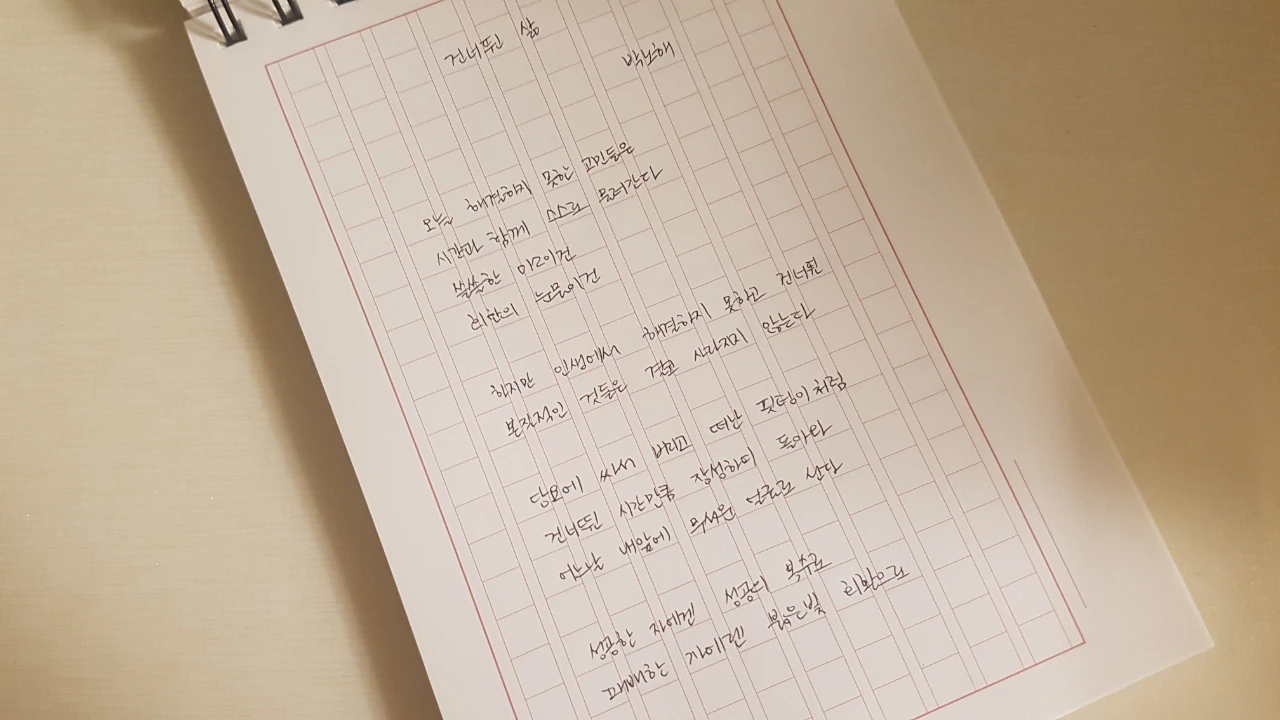 건너뛴 삶
박노해
오늘 해결하지 못한 고민들은
시간과 함께 스스로 물러간다
쓸쓸한 미소이건
회한의 눈물이건
하지만 인생에서 해결하지 못하고 건너뛴
본질적인 것들은 결코 사라지지 않는다
담요에 싸서 버리고 떠난 핏덩이처럼
건너뛴 시간만큼 장성하여 돌아와
어느 날 내 앞에 무서운 얼굴로 선다
성공한 자에겐 성공의 복수로
패배한 자에겐 붉은빛 회한으로